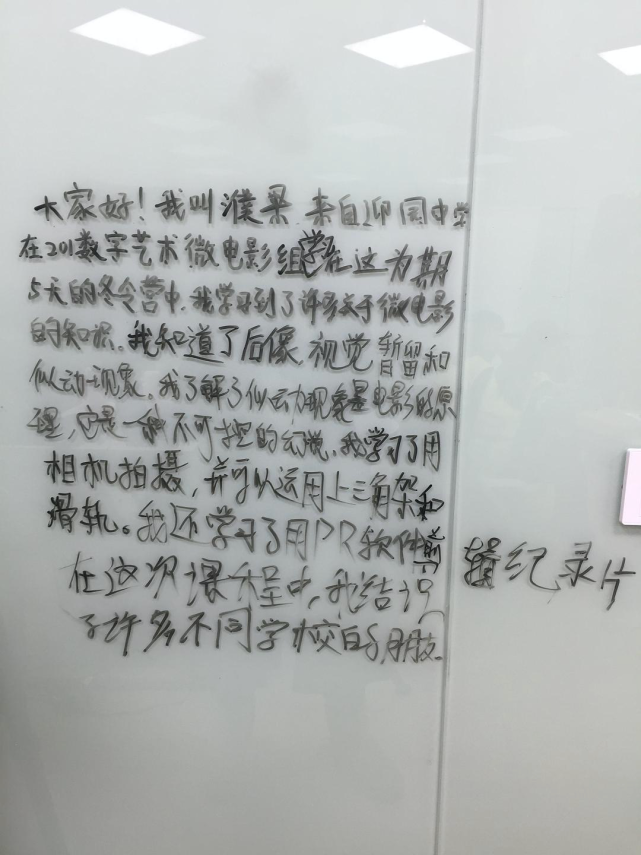 大家好！我叫濮果，来自迎园中学
在201数字艺术微电影组学在这为期
5天的冬令营中，我学习到了许多关于微电影
的知识。我知道了后像 视觉暂留和
似动现象。我了解了似动现象是电影的原
理，它是一种不可控的幻觉。我学习了用
相机拍摄，并可以运用上三角架和
滑轨。我还学习了用PR软件剪辑纪录片
在这次课程中，我结识
了许多不同学校的朋友。